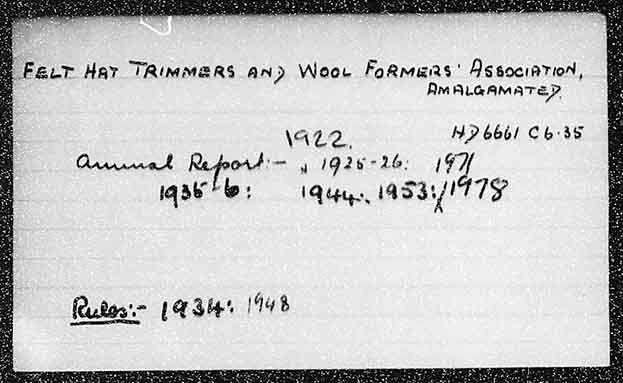 FELT HAT TRIMMERS AND WOOL FORMERS' ASSOCIATION,
AMALGAMATED.
HD6661 C6.35
1922.
Annual Report:- 1925-26: 1971
1935-6: 1944: 1953: 1978
Rules:- 1934: 1948